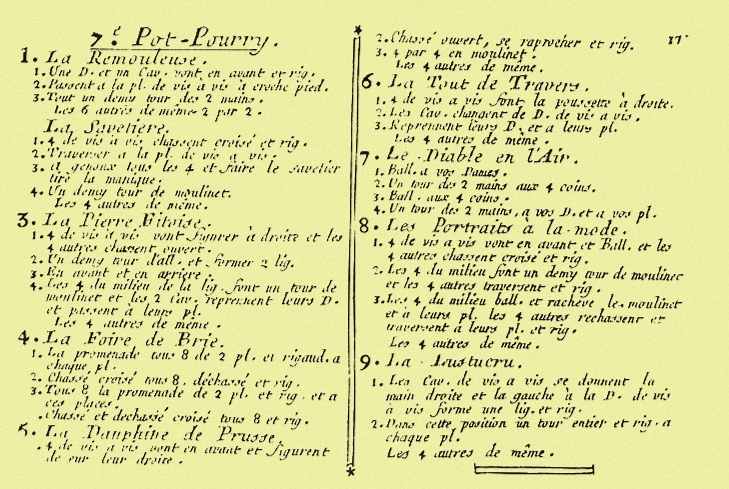 7.e Pot-Pourry.
1. La Remouleuse.
1. Une D. et un Cav. vont en avant et rig.
2. Passent a la pl. de vis a vis a croche pied.
3. Tout un demy tour des 2 mains.
Les 6 autres de même 2 par 2.
La Savetiere.
1. 4 de vis à vis chassent croisé et rig.
2. Traverser a la pl. de vis a vis.
3. a genoux tous les 4 et faire le savetier
tire la manique.
4. Un demy tour de moulinet.
Les 4 autres de même.
3. La Pierre Fitoise.
1. 4 de vis à vis vont figurer à droite et les
4 autres chassent ouvert.
2. Un demy tour d'all. et former 2 lig.
3. En avant et en arriere.
4. Les 4 du milieu de la lig. font un tour de
moulinet et les 2 Cav. reprennent leurs D.
et passent à leurs pl.
Les 4 autres de même.
4. La Foire de Brie.
1. La promenade tous 8 de 2 pl. et rigaud. a
chaque pl.
2. Chassé croisé tous 8. déchassé et rig.
3. Tous 8 la promenade de 2 pl. et rig. et a
ces places.
. Chassé et dechassé croisé tous 8 et rig.
5. La Dauphine de Prusse.
. 4 de vis a vis vont en avant et figurent
de sur leur droite.
17
2. Chassé ouvert, se raprocher et rig.
3. 4 par 4 en moulinet.
Les 4 autres de même.
6. La Tout de Travers.
1. 4 de vis a vis font la poussette à droite.
2. Les Cav. changent de D. de vis a vis.
3. Reprennent leurs D. et a leurs pl.
Les 4 autres de même.
7. Le Diable en l'Air.
1. Ball. a vos Dames.
2. Un tour des 2 mains aux 4 coins.
3. Ball. aux 4 coins.
4. Un tour des 2 mains, a vos D. et a vos pl.
8. Les Portraits a la mode.
1. 4 de vis a vis vont en avant et Ball. et les
4 autres chassent croisé et rig.
2. Les 4 du milieu font un demy tour de moulinet
et les 4 autres traversent et rig.
3. Les 4 du milieu ball. et racheve le moulinet
et a leurs pl. les 4 autres rechassent et
traversent a leurs pl. et rig.
Les 4 autres de même.
9. La Lustucru.
1. Les Cav. de vis a vis se donnent la
main droite et la gauche à la D. de vis
à vis forme une lig. et rig.
2. Dans cette position un tour entier et rig. a
chaque pl.
Les 4 autres de même.